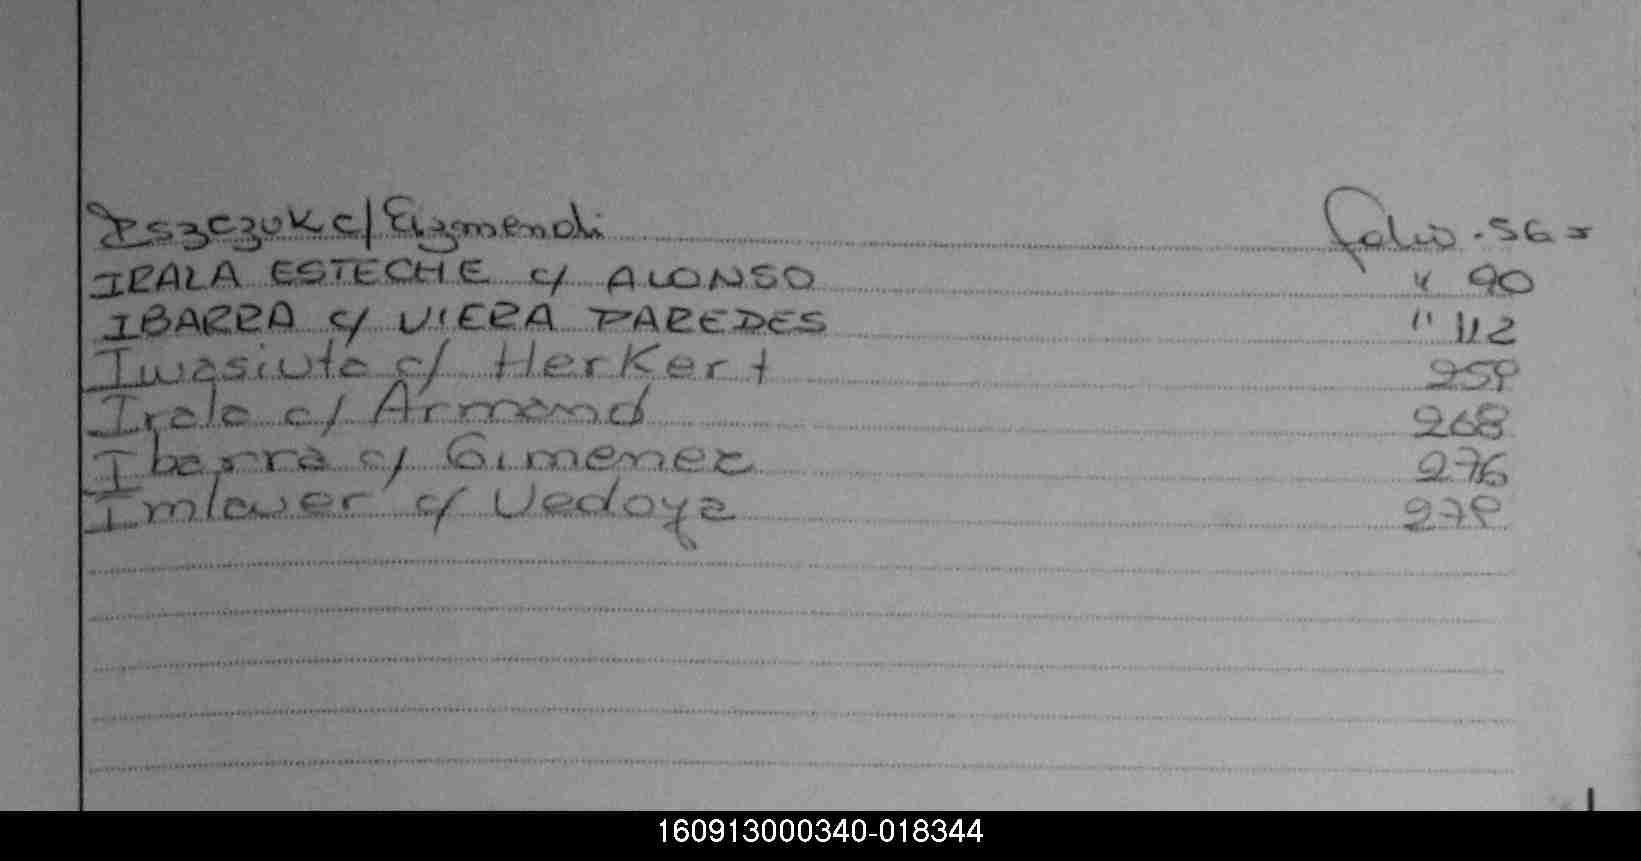 Iszczuk c/ Eizmendi folio . 56 =
IRALA ESTECHE c/ ALONSO " 90
IBARRA c/ VIERA PAREDES " 112
Iwasiuta c/ Herkert 259
Irala c/ Armand 268
Ibarra c/ Gimenez 276
Imlauer c/ Vedoya 279
160913000340-018344